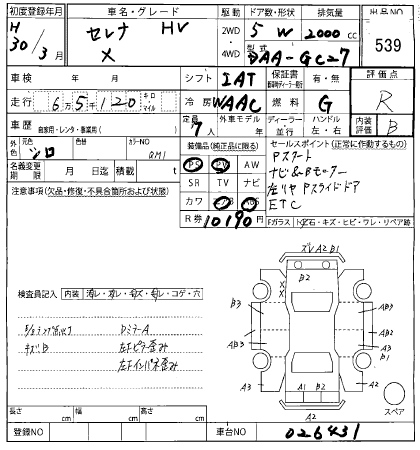 初度登録年月 車名・グレード 駆動 ドア数・形状 排気量 出品NO
H 30年 3月 セレナ HV X 2WD・4WD 5 W 2000 cc 539
型式 DAA-GC27
車検 年 月 シフト IAT 保証書 有・無 評価点 R
走行 6万5千120 キロ マイル 冷房 WAAC 燃料 G
車歴 自家用・レンタ・事業用( ) 定員 7人 外車モデル 年 ディーラー・並行 ハンドル 左・右 内装評価 B
色 元色 シロ 色替 カラーNO QM1
装備品(純正品に限る) セールスポイント(正常に作動するもの)
PS PW AW Pスタート
名義変更期限 月 日迄 積載 t SR TV ナビ ナビ&Bモニター
注意事項(欠品・修復・不具合箇所および状態) カワ エアB ABS 左リヤPスライドドア
ETC
R券 10190円 Fガラス トビ石・キズ・ヒビ・ワレ・リペア跡
ズレA2 B1
B2
X
X
検査員記入 内装 汚レ・ガレ・キズ・切レ・コゲ・穴
B3 A3
AB3 AB3
B3
DミラーA
キズB 左Fピラー歪み
左Fインパネ歪み
B1
A3 A1 B2 A2
A2
スペア
長さ cm 幅 cm 高さ cm
登録NO 車台NO 026431